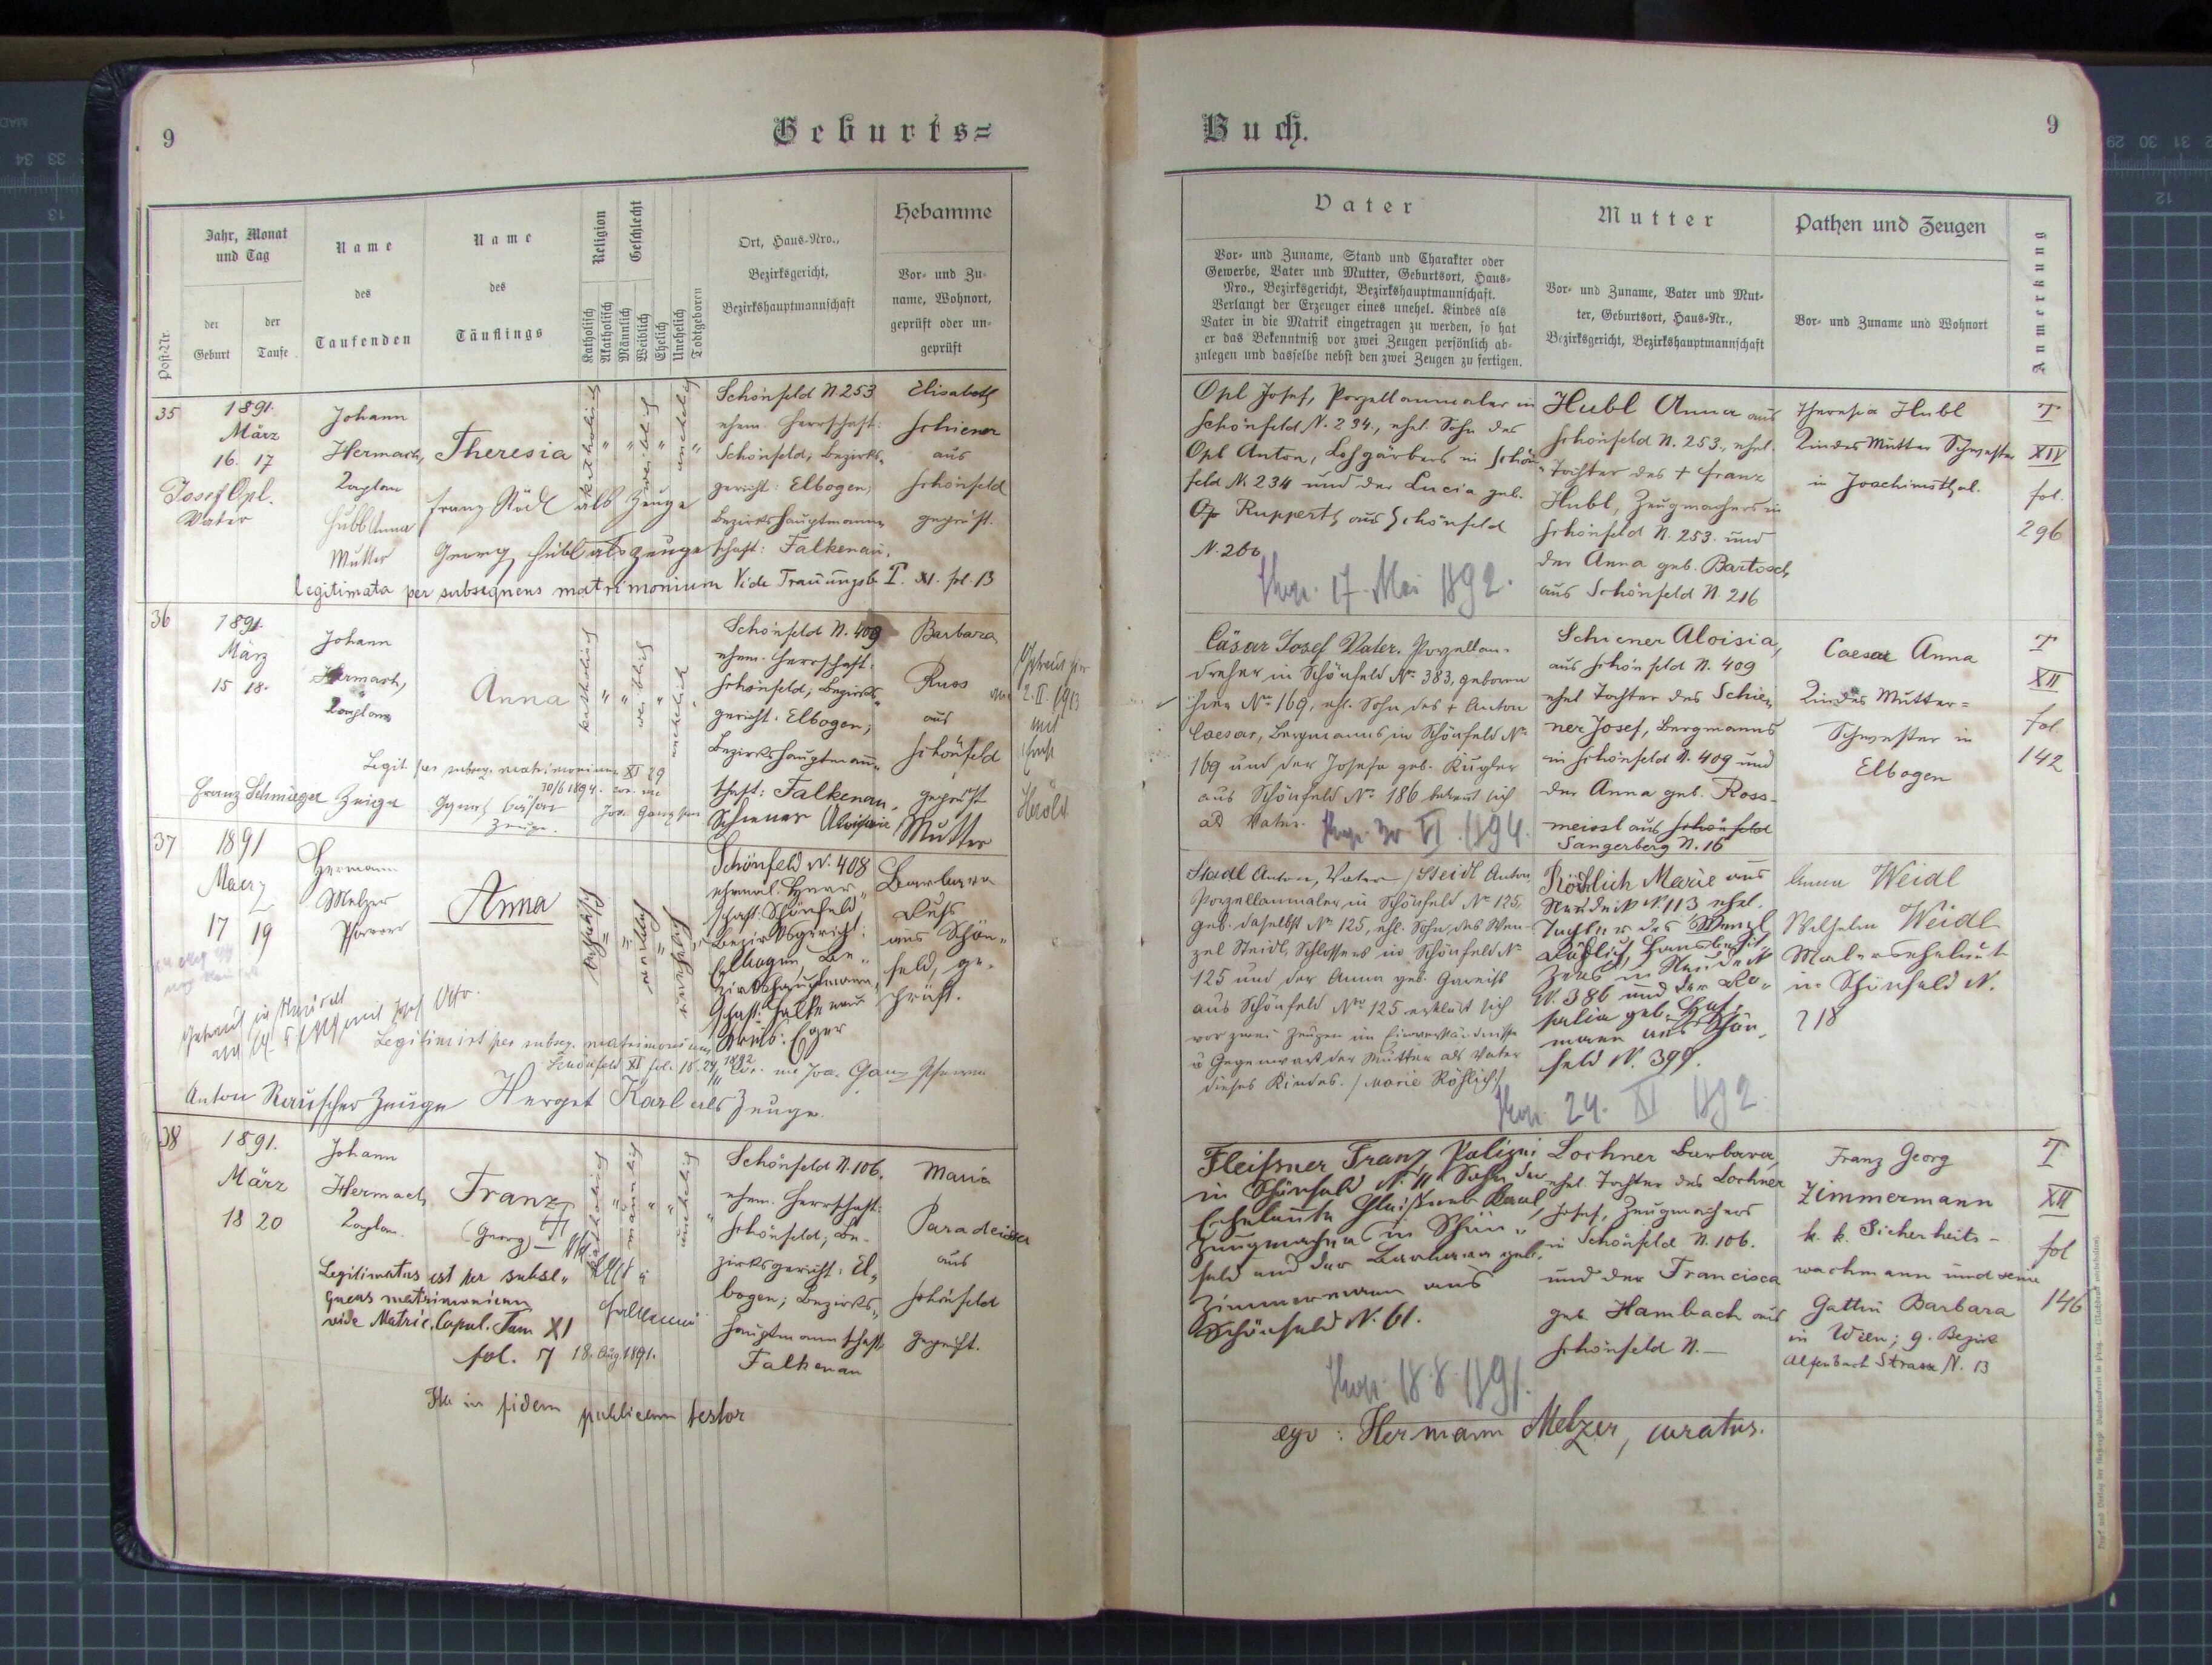 9
Geburts=
Jahr, Monat
und Tag
der
Geburt
der
Taufe
Post-Nr.
Name
des
Taufenden
Name
des
Täuflings
Religion
Geschlecht
Katholisch
Akatholisch
Männlich
Weiblich
Ehelich
Unehelich
Todtgeboren
Ort, Haus-Nro.,
Bezirksgericht,
Bezirkshauptmannschaft
Hebamme
Vor- und Zu-
name, Wohnort,
geprüft oder un-
geprüft
35
1891.
März
16. 17
Josef Opl.
Vater
Johann
Hermach,
Kaplan
Hubl Anna
Mutter
Theresia
Franz Stödl als Zeuge
Georg Hubl als Zeuge
katholisch
weiblich
unehelich
Schönfeld N. 253
ehem. Herrschaft:
Schönfeld; Bezirks-
gericht: Elbogen;
Bezirkshauptmann-
schaft: Falkenau.
Elisabeth
Schiener
aus
Schönfeld
geprüft.
legitimata per subsequens matrimonium Vide Trauungsb. T. XI. fol. 13
36
1891.
März
15 18.
Johann
Hermach,
Kaplan
Anna
katholisch
weiblich
unehelich
Schönfeld N. 409
ehem. Herrschaft:
Schönfeld; Bezirks-
gericht: Elbogen;
Bezirkshauptmann-
schaft: Falkenau.
Barbara
Russ
aus
Schönfeld
geprüft
2. II. 1913
mit
Herold
Legit. per subseq. matrimonium XI 29
30/6 1894.
Franz Schmieger Zeuge
Zeuge.
Schiener Aloisia Mutter
37
1891
Maerz
17 19
Hermann
Melzer
Pfarrer
Anna
katholisch
weiblich
unehelich
Schönfeld N. 408
ehemal. Herr-
schaft: Schönfeld
Bezirksgericht:
Elbogen, Be-
zirkshauptmann-
schaft: Falkenau
Kreis: Eger
Barbara
Russ
aus Schön-
feld, ge-
prüft.
Legitimirt per subseq. matrimonium
Schönfeld XI fol. 18.
Anton Rauscher Zeuge Herget Karl als Zeuge.
38
1891.
März
18 20
Johann
Hermach
Kaplan.
Franz
(Georg)
katholisch
männlich
unehelich
Schönfeld N. 106.
ehem. Herrschaft:
Schönfeld; Be-
zirksgericht: El-
bogen; Bezirks-
hauptmannschaft:
Falkenau
Maria
Paradeiser
aus
Schönfeld
geprüft.
Legitimatus est per subse-
quens matrimonium
vide Matric. Copul. Tom XI
fol. 7 18. Aug. 1891.
Falkenau
Ita in fidem publicam testor
Buch.
9
Vater
Vor- und Zuname, Stand und Charakter oder
Gewerbe, Vater und Mutter, Geburtsort, Haus-
Nro., Bezirksgericht, Bezirkshauptmannschaft.
Verlangt der Erzeuger eines unehel. Kindes als
Vater in die Matrik eingetragen zu werden, so hat
er das Bekenntniß vor zwei Zeugen persönlich ab-
zulegen und dasselbe nebst den zwei Zeugen zu fertigen.
Mutter
Vor- und Zuname, Vater und Mut-
ter, Geburtsort, Haus-Nr.,
Bezirksgericht, Bezirkshauptmannschaft
Pathen und Zeugen
Vor- und Zuname und Wohnort
Anmerkung
Opl Josef, Porzellanmaler in
Schönfeld N. 234., ehel. Sohn des
Opl Anton, Lohgärbers in Schön-
feld N. 234 und der Lucia geb.
Ruppert aus Schönfeld
N. 260
17. Mai 1892.
Hubl Anna aus
Schönfeld N. 253., ehel.
Tochter des + Franz
Hubl, Zeugmachers in
Schönfeld N. 253. und
der Anna geb. Bartosch
aus Schönfeld N. 216
Theresia Hubl
Kindes Mutter Schwester
in Joachimsthal.
T
XIV
fol.
296
Cäsar Josef Vater, Porzellan-
dreher in Schönfeld No. 383, geboren
hier No. 169, ehl. Sohn des + Anton
Caesar, Bergmanns in Schönfeld No.
169 und der Josefa geb. Kugler
aus Schönfeld No. 186 bekennt sich
als Vater.
30. VI. 1894.
Schiener Aloisia,
aus Schönfeld N. 409
ehel Tochter des Schie-
ner Josef, Bergmanns
in Schönfeld N. 409 und
der Anna geb. Ross-
meissl aus Schönfeld
Sangerberg N. 16
Caesar Anna
Kindes Mutter=
Schwester in
Elbogen
T
XII
fol.
142
Stadl Anton, Vater / Steidl Anton,
Porzellanmaler, in Schönfeld No. 125,
geb. daselbst No. 125, ehl. Sohn des Wen-
zel Steidl, Schlossers in Schönfeld No.
125 und der Anna geb. Gareis
aus Schönfeld Nro. 125 erklärt sich
vor zwei Zeugen im Einverständnisse
u Gegenwart der Mutter als Vater
dieses Kindes. / Marie Röhlich /
24. XI 1892
Röhlich Marie aus
Neudek N. 113 ehel.
Tochter des Wenzl
Röhlich, Hausbesit-
zers in Neudek
N. 386 und der Ro-
salia geb.
aus Schön-
feld N. 399.
Anna Weidl
Wilhelm Weidl
Malerseheleute
in Schönfeld N.
218
Fleissner Franz Polizei
in Schönfeld N. 11 Sohn der
Eheleute Fleissner Karl
Zeugmacher in Schön-
feld und der Barbara geb.
Zimmermann aus
Schönfeld N. 61.
18.8.1891.
Lochner Barbara,
ehel. Tochter des Lochner
Josef, Zeugmachers
in Schönfeld N. 106.
und der Francisca
geb. Hambach aus
Schönfeld N. —
Franz Georg
Zimmermann
k. k. Sicherheits-
wachmann und seine
Gattin Barbara
in Wien; 9. Bezirk
Alserbach Strasse N. 13
T
XII
fol
146
ego: Hermann Melzer, curatus.